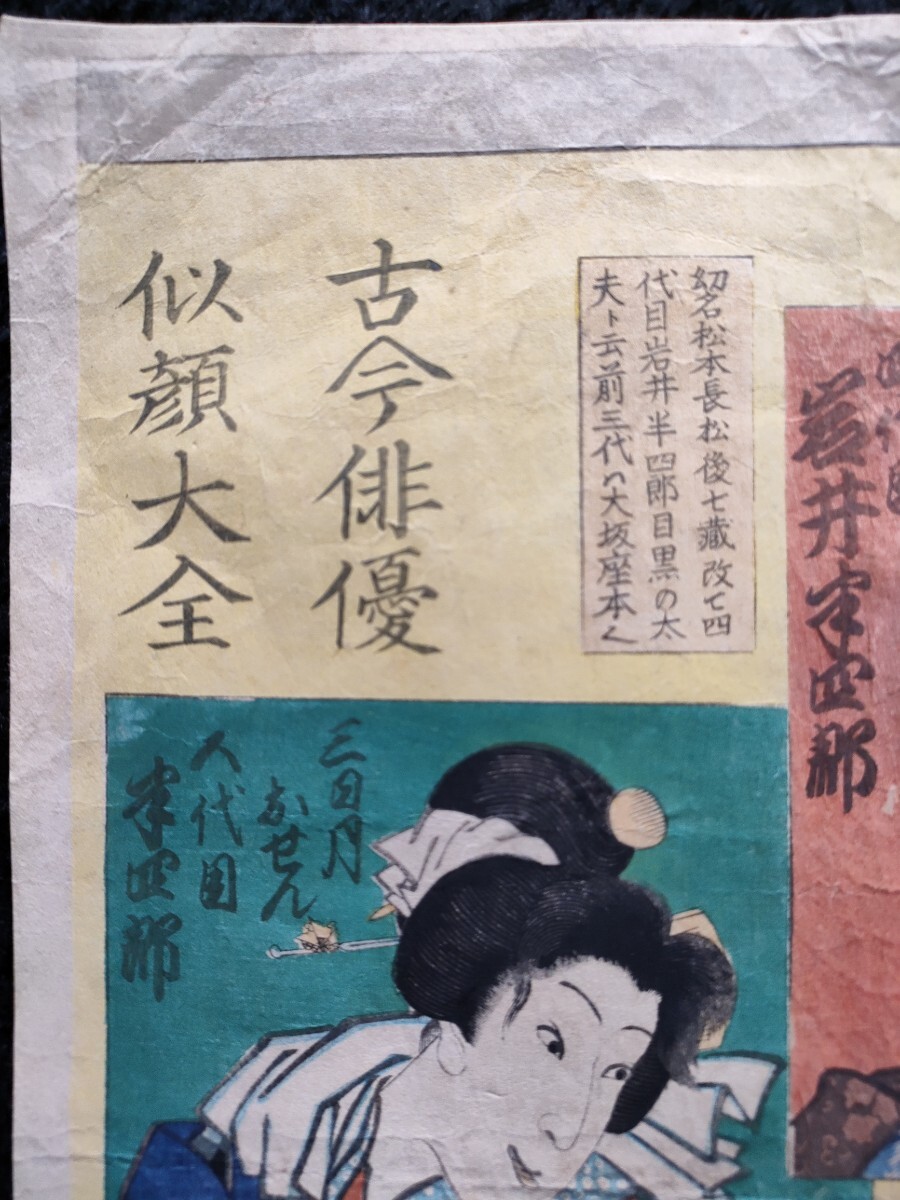 四代目
岩井半四郎
幼名松本長松後七蔵改て四
代目岩井半四郎目黒の太
夫ト云前三代ハ大坂座本く
古今俳優
似顔大全
三日月
おせん
八代目
半四郎